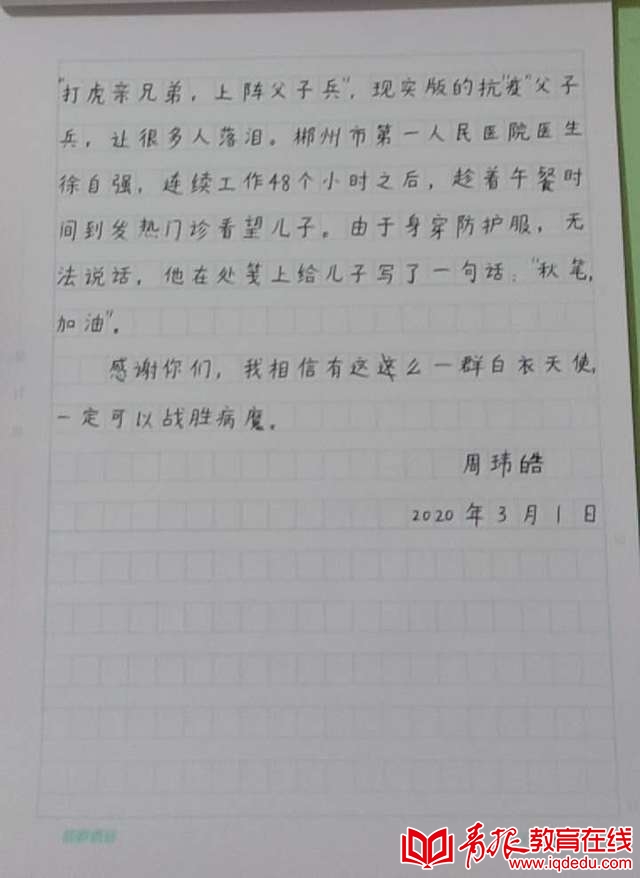 "打虎亲兄弟，上阵父子兵"，现实版的抗"疫"父子
兵，让很多人落泪。郴州市第一人民医院医生
徐自强，连续工作48个小时之后，趁着午餐时
间到发热门诊看望儿子。由于身穿防护服，无
法说话，他在处笺上给儿子写了一句话："秋笔，
加油"。
感谢你们，我相信有这这么一群白衣天使，
一定可以战胜病魔。
周玮皓
2020年3月1日
青报教育在线
www.iqdedu.com